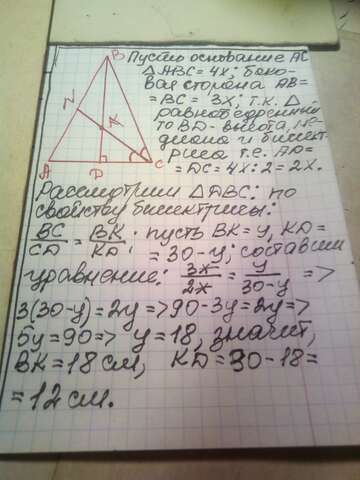 B
N
K
A
D
C
Пусть основание AC
△ABC = 4x; боко-
вая сторона AB =
= BC = 3x; т.к. △
равнобедренный,
то BD - высота, ме-
диана и биссект-
риса т.е. AD =
= DC = 4x:2 = 2x.
Рассмотрим △DBC: по
свойству биссектрисы:
BC/CD = BK/KD. пусть BK = y, KD =
= 30-y; составим
уравнение: 3x/2x = y/30-y =>
3(30-y) = 2y => 90-3y = 2y =>
5y = 90 => y = 18, значит,
BK = 18 см, KD = 30-18 =
= 12 см.